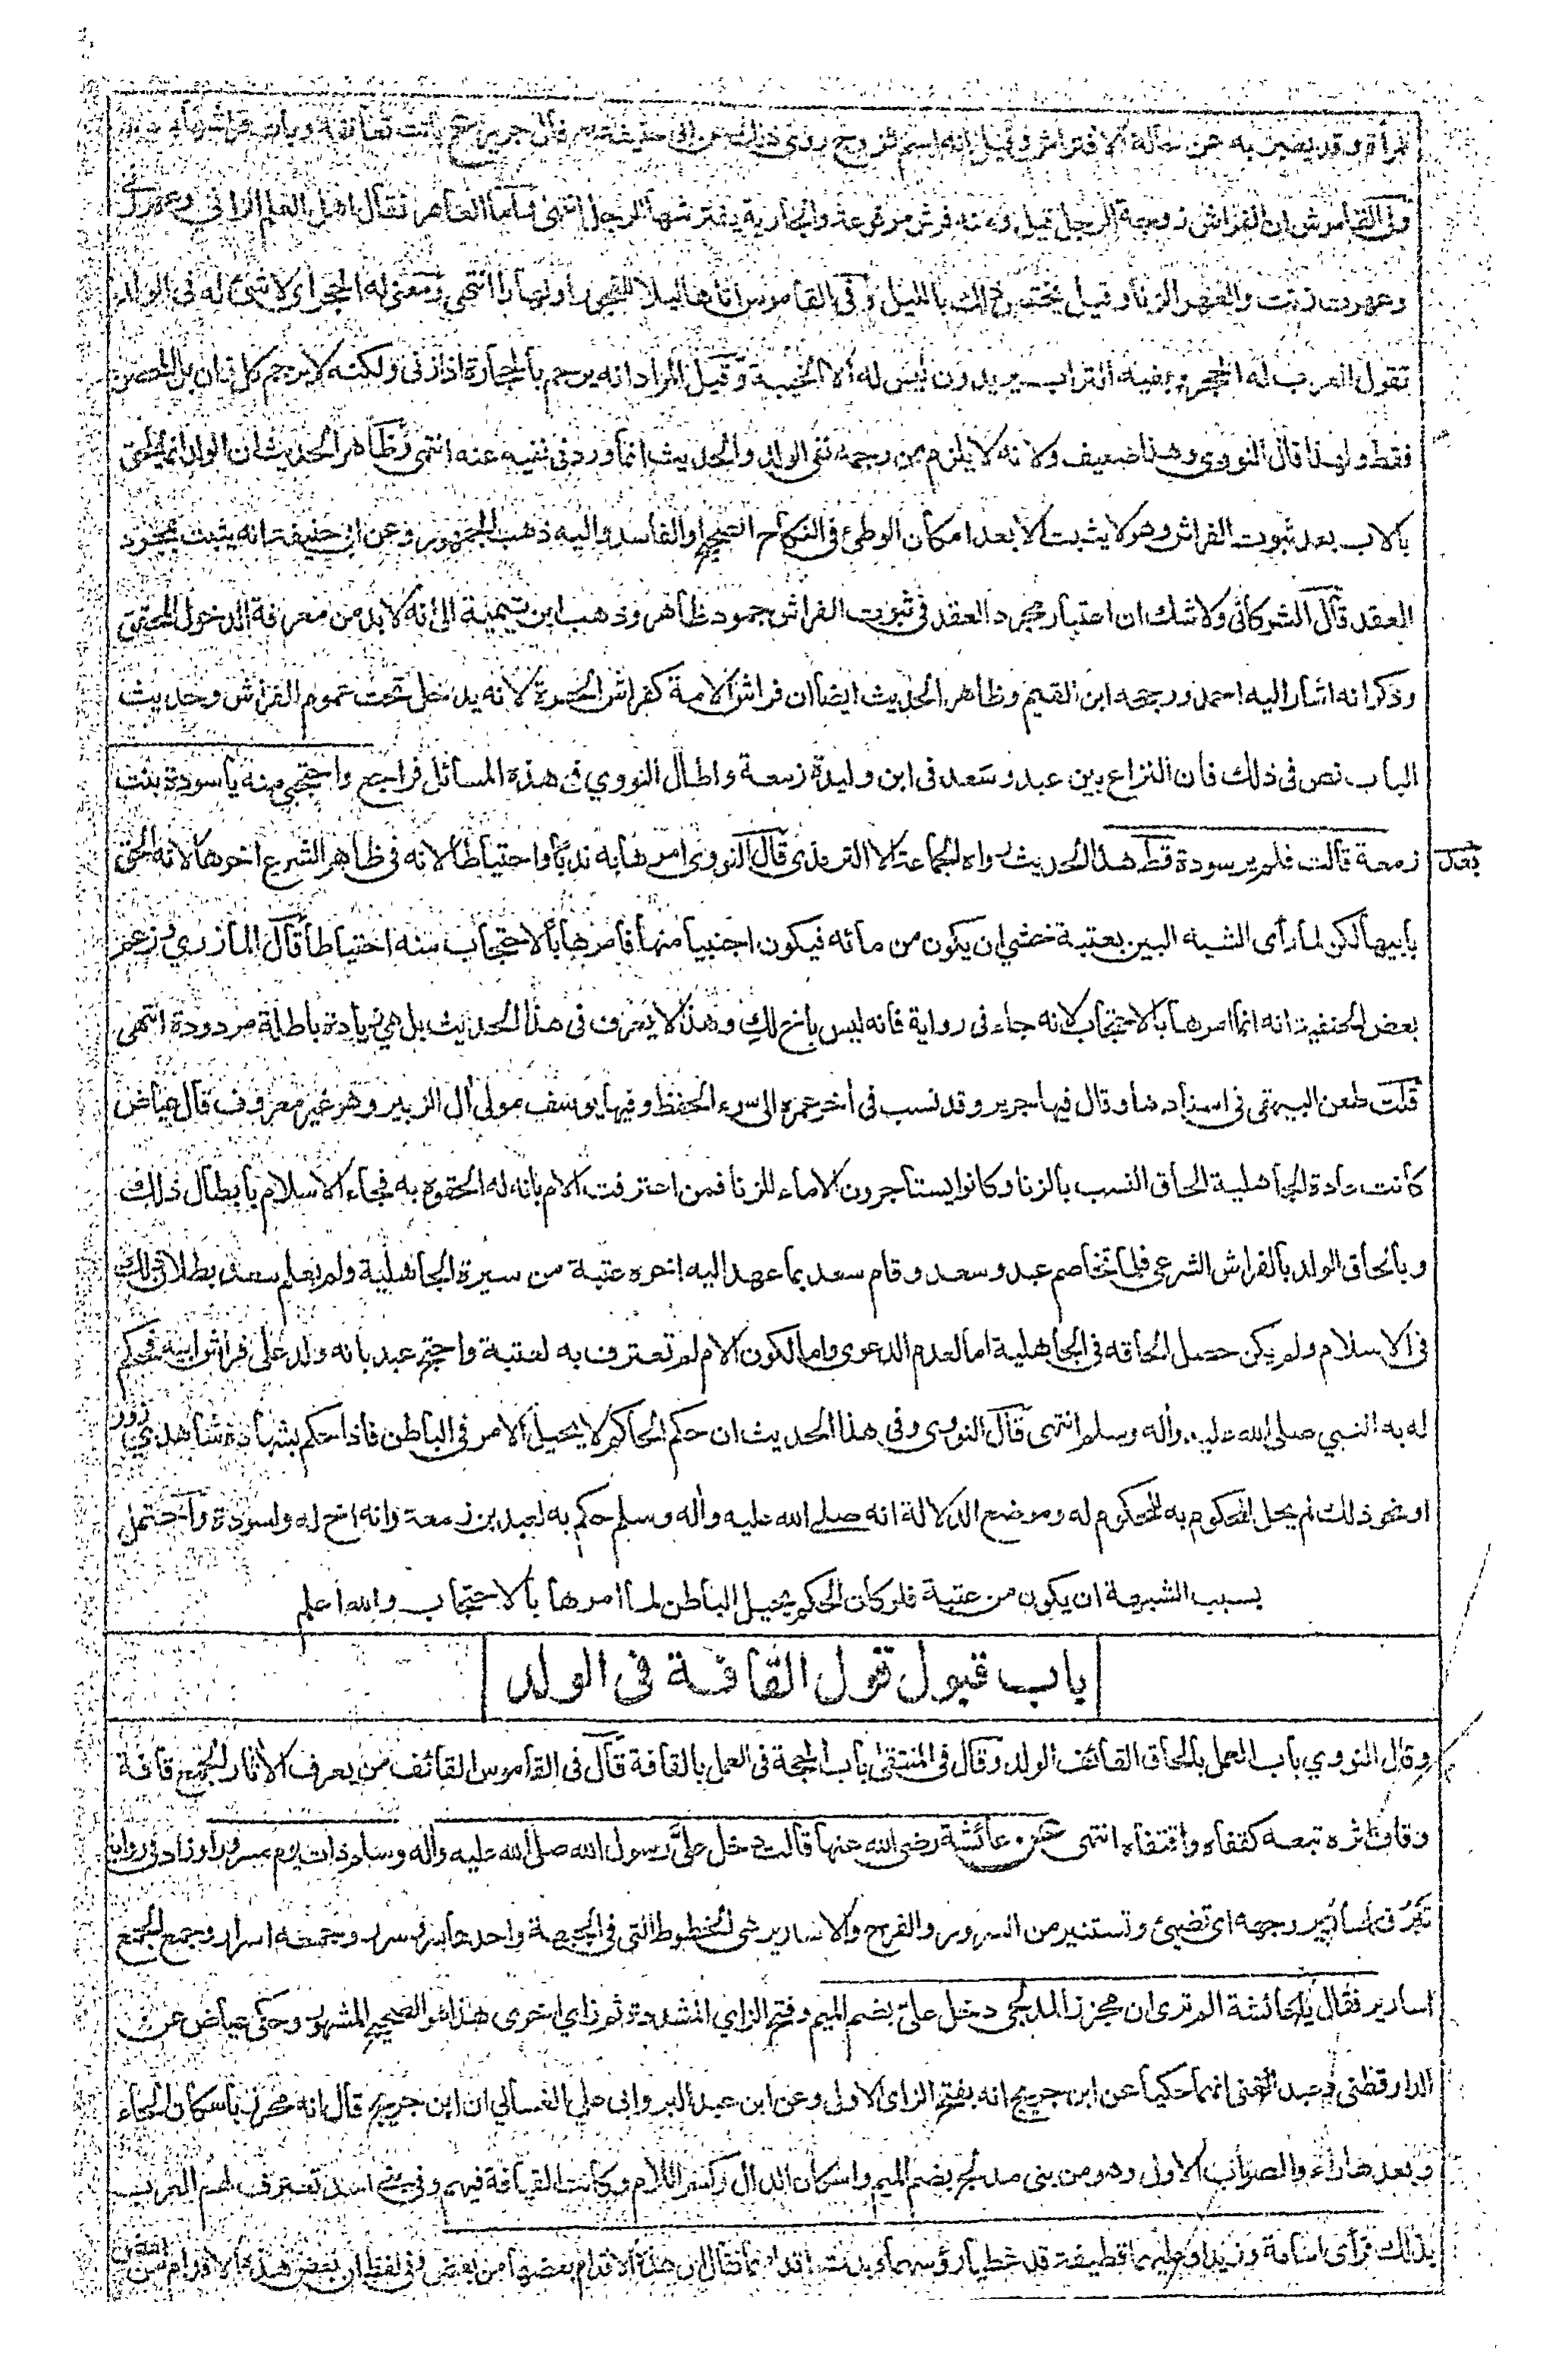 المرأة وقد يعبر به عن حالة الافتراش وقيل انه اسم للزوج روى ذلك عن ابى حنيفة قال جرير باتت تعانقه وبات فراشها
وفى القاموس ان الفراش زوجة الرجل قيل ومنه فرش مرفوعة والجارية يفترشها الرجل انتهى واما العاهر فقال اهل العلم الزانى وعهر زنى
وعهرت زنت والعهر الزنا وقيل يختص ذلك بالليل وفى القاموس اتاها ليلا للفجور او نهارا انتهى ومعنى له الحجر اى لا شئ له فى الولد
تقول العرب له الحجر وبفيه التراب يريدون ليس له الا الخيبة وقيل المراد انه يرجم بالحجارة اذا زنى ولكنه لا يرجم كل زان بل المحصن
فقط ولهذا قال النووى وهذا ضعيف ولانه لا يلزم من رجمه نفى الولد والحديث انما ورد فى نفيه عنه انتهى وظاهر الحديث ان الولد انما يلحق
بالاب بعد ثبوت الفراش وهو لا يثبت الا بعد امكان الوطئ فى النكاح الصحيح او الفاسد واليه ذهب الجمهور وعن ابى حنيفة انه يثبت بمجرد
العقد قال الشوكانى ولا شك ان اعتبار مجرد العقد فى ثبوت الفراش جمود ظاهر وذهب ابن تيمية الى انه لا بد من معرفة الدخول المحقق
وذكر انه اشار اليه احمد ورجحه ابن القيم وظاهر الحديث ايضا ان فراش الامة كفراش الحرة لانه يدخل تحت عموم الفراش وحديث
الباب نص فى ذلك فان النزاع بين عبد وسعد فى ابن وليدة زمعة واطال النووي فى هذه المسائل فراجع واحتجبى منه يا سودة بنت
زمعة قالت فلم ير سودة قط هذا الحديث رواه الجماعة الا الترمذى قال النووى امرها به ندبا واحتياطا لانه فى ظاهر الشرع اخوها لانه الحق
بعد
بابيها لكن لما رأى الشبه البين بعتبة خشي ان يكون من مائه فيكون اجنبيا منها فامرها بالاحتجاب منه احتياطا قال المازري وزعم
بعض الحنفية انه انما امرها بالاحتجاب لانه جاء فى رواية فانه ليس باخ لك وهذا لا يعرف فى هذا الحديث بل هى زيادة باطلة مردودة انتهى
قلت طعن البيهقى فى اسنادها وقال فيها جرير وقد نسب فى اخر عمره الى سوء الحفظ وفيها يوسف مولى آل الزبير وهو غير معروف قال عياض
كانت عادة الجاهلية الحاق النسب بالزنا وكانوا يستأجرون الاماء للزنا فمن اعترفت الام بانه له الحقوه به فجاء الاسلام بابطال ذلك
وبالحاق الولد بالفراش الشرعى فلما تخاصم عبد وسعد وقام سعد بما عهد اليه اخوه عتبة من سيرة الجاهلية ولم يعلم سعد بطلان ذلك
فى الاسلام ولم يكن حصل الحاقه فى الجاهلية اما لعدم الدعوى واما لكون الام لم تعترف به لعتبة واحتج عبد بانه ولد على فراش ابيه فحكم
له به النبي صلى الله عليه وأله وسلم انتهى قال النووى وفى هذا الحديث ان حكم الحاكم لا يحيل الامر فى الباطن فاذا حكم بشهادة شاهدي زور
او نحو ذلك لم يحل المحكوم به للمحكوم له وموضع الدلالة انه صلى الله عليه وأله وسلم حكم به لعبد بن زمعة وانه اخ له ولسودة واحتمل
بسبب الشبهة ان يكون من عتبة فلو كان الحكم يحيل الباطن لما امرها بالاحتجاب والله اعلم
باب قبول قول القافة فى الولد
وقال النووي باب العمل بالحاق القائف الولد وقال فى المنتقى باب الحجة فى العمل بالقافة قال فى القاموس القائف من يعرف الاثار الجمع قافة
وقاف اثره تبعه كقفاه واقتفاه انتهى عن عائشة رضى الله عنها قالت دخل علىّ رسول الله صلى الله عليه وأله وسلم ذات يوم مسرورا وزاد فى رواية
تبرق اسارير وجهه اى تضيئ وتستنير من السرور والفرح والاسارير هى الخطوط التى فى الجبهة واحدها سر وسرر وجمعه اسرار وجمع الجمع
اسارير فقال يا عائشة الم ترى ان مجززا المدلجى دخل علىّ بضم الميم وفتح الزاي المشددة ثم زاي اخرى هذا هو الصحيح المشهور وحكى عياض عن
الدارقطنى وعبد الغنى انهما حكيا عن ابن جريج انه بفتح الزاى الاولى وعن ابن عبد البر وابى على الغسانى ان ابن جريج قال انه محرز باسكان الحاء
وبعدها راء والصواب الاول وهو من بنى مدلج بضم الميم واسكان الدال وكسر اللام وكانت القيافة فيهم وفى بنى اسد تعترف لهم العرب
بذلك فرأى اسامة وزيدا وعليهما قطيفة قد غطيا رؤسهما وبدت اقدامهما فقال ان هذه الاقدام بعضها من بعض وفى لفظ ان بعض هذه الاقدام لمن